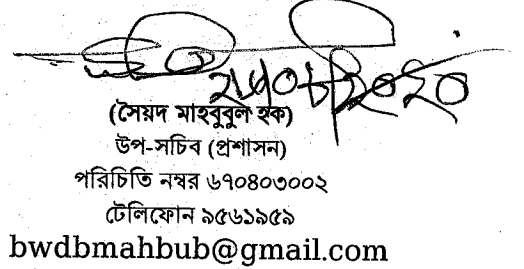 ২৭/০৮/২০২০
(সৈয়দ মাহবুবুল হক)
উপ-সচিব (প্রশাসন)
পরিচিতি নম্বর ৬৭০৪০৩০০২
টেলিফোন ৯৫৬১৯৫৯
bwdbmahbub@gmail.com